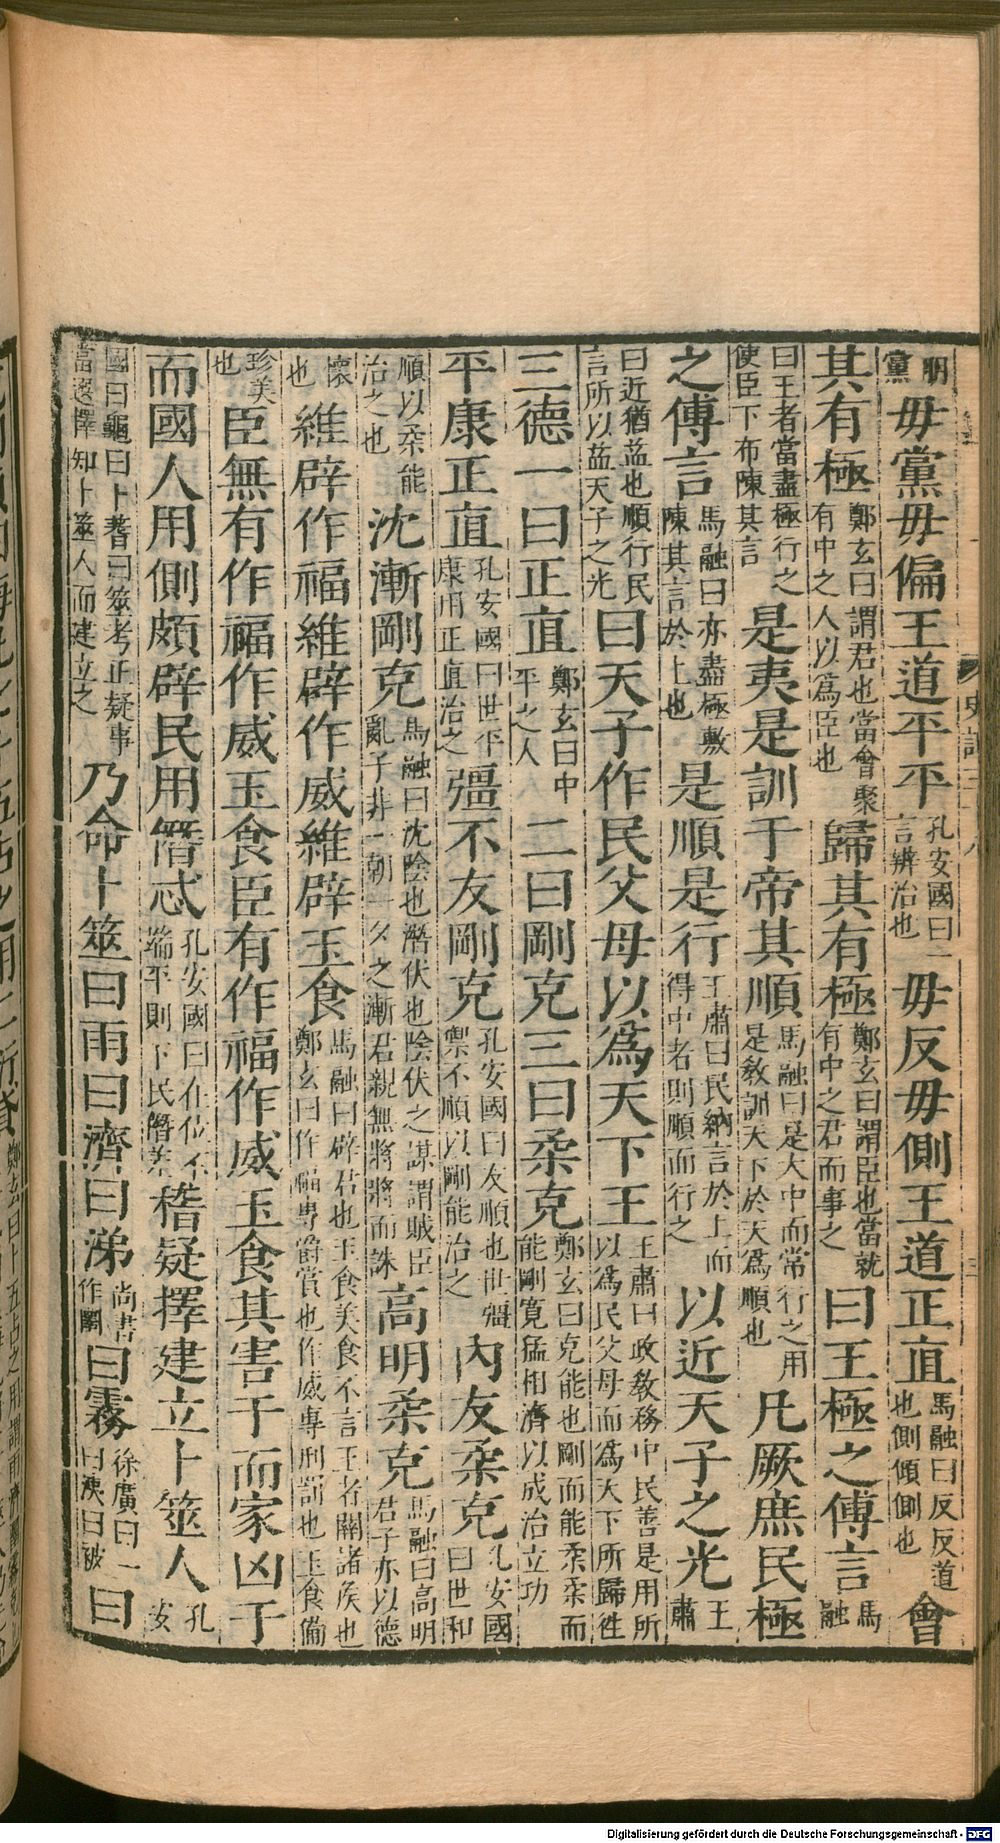 朋黨毋黨毋偏王道平平孔安國曰言辨治也毋反毋側王道正直馬融曰反反道也側傾側也會
其有極鄭玄曰謂君也當會聚有中之人以爲臣也歸其有極鄭玄曰謂臣也當就有中之君而事之曰王極之傅言馬融
曰王者當盡極行之使臣下布陳其言是夷是訓于帝其順馬融曰是大中而常行之用是敎訓天下於天爲順也凡厥庶民極
之傅言馬融曰亦盡極敷陳其言於上也是順是行王肅曰民納言於上而得中者則順而行之以近天子之光王肅
曰近猶益也順行民言所以益天子之光曰天子作民父母以爲天下王王肅曰政敎務中民善是用所以爲民父母而爲天下所歸徃
三德一曰正直鄭玄曰中平之人二曰剛克三曰柔克鄭玄曰克能也剛而能柔柔而能剛寬猛相濟以成治立功
平康正直孔安國曰世平康用正直治之彊不友剛克孔安國曰友順也世彊禦不順以剛能治之內友柔克孔安國曰世和
順以柔能治之也沈漸剛克馬融曰沈陰也潛伏也陰伏之謀謂賊臣亂子非一朝一夕之漸君親無將將而誅高明柔克馬融曰高明君子亦以德
懷也維辟作福維辟作威維辟玉食馬融曰辟君也玉食美食不言王者關諸侯也鄭玄曰作福專爵賞也作威專刑罰也玉食備
珍美也臣無有作福作威玉食臣有作福作威玉食其害于而家凶于
而國人用側頗辟民用僭忒孔安國曰在位不端平則下民僭差稽疑擇建立卜筮人孔安
國曰龜曰卜蓍曰筮考正疑事當選擇知卜筮人而建立之乃命卜筮曰雨曰濟曰涕尚書作圛曰霧徐廣曰一曰洟曰被曰
Digitalisierung gefördert durch die Deutsche Forschungsgemeinschaft - DFG